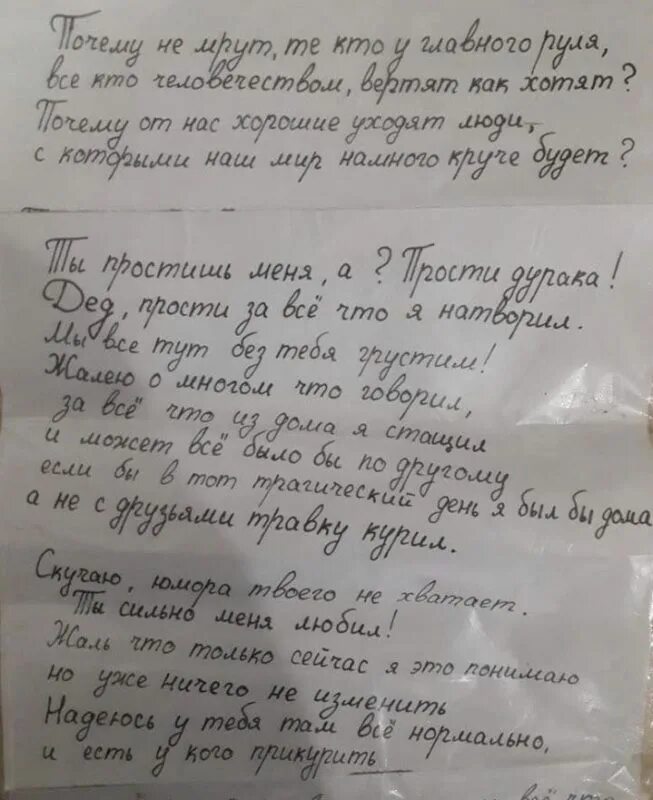 Почему не мрут, те кто у главного руля,
все кто человечеством, вертят как хотят?
Почему от нас хорошие уходят люди,
с которыми наш мир намного круче будет?
Ты простишь меня, а ? Прости дурака!
Дед, прости за всё что я натворил.
Мы все тут без тебя грустим!
Жалею о многом что говорил,
за всё что из дома я стащил
и может всё было бы по другому
если бы в тот трагический день я был бы дома
а не с друзьями травку курил.
Скучаю, юмора твоего не хватает.
Ты сильно меня любил!
Жаль что только сейчас я это понимаю
но уже ничего не изменить
Надеюсь у тебя там всё нормально,
и есть у кого прикурить
всё что